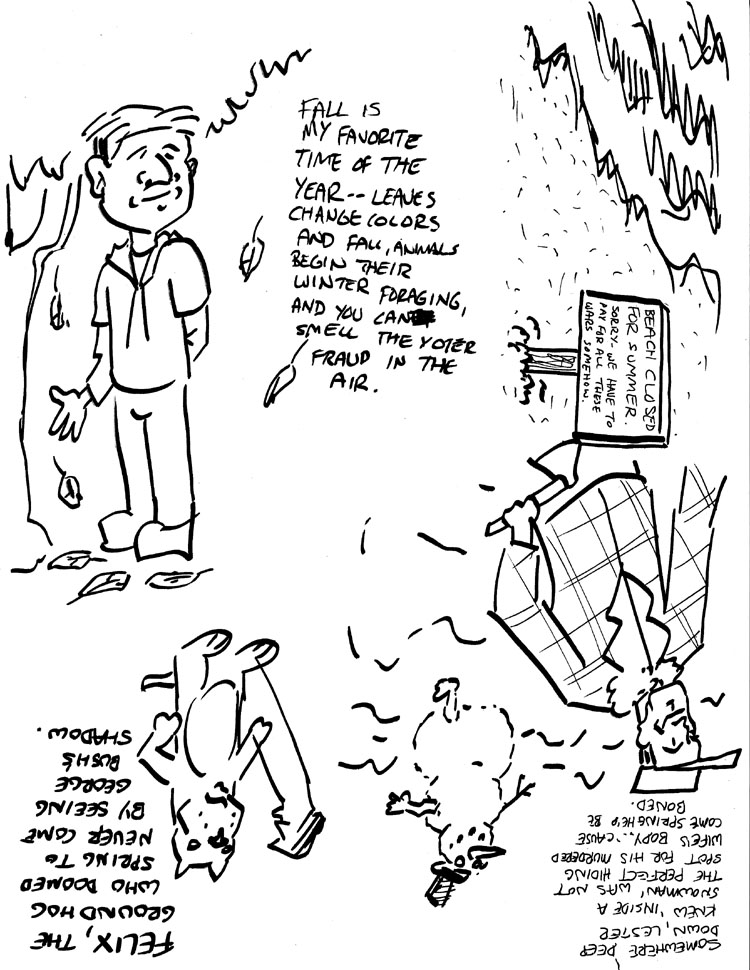 FALL IS
MY FAVORITE
TIME OF THE
YEAR-- LEAVES
CHANGE COLORS
AND FALL, ANIMALS
BEGIN THEIR
WINTER FORAGING,
AND YOU CAN
SMELL THE VOTER
FRAUD IN THE
AIR.
BEACH CLOSED
FOR SUMMER.
SORRY- WE HAVE TO
PAY FOR ALL THESE
WARS SOMEHOW.
SOMEWHERE DEEP
DOWN, LESTER
KNEW INSIDE A
SNOWMAN, WAS NOT
THE PERFECT HIDING
SPOT FOR HIS MURDERED
WIFE'S BODY... CAUSE
COME SPRING HE'D BE
BONED.
FELIX, THE
GROUND HOG
WHO DOOMED
SPRING TO
NEVER COME
BY SEEING
GEORGE
BUSH'S
SHADOW.